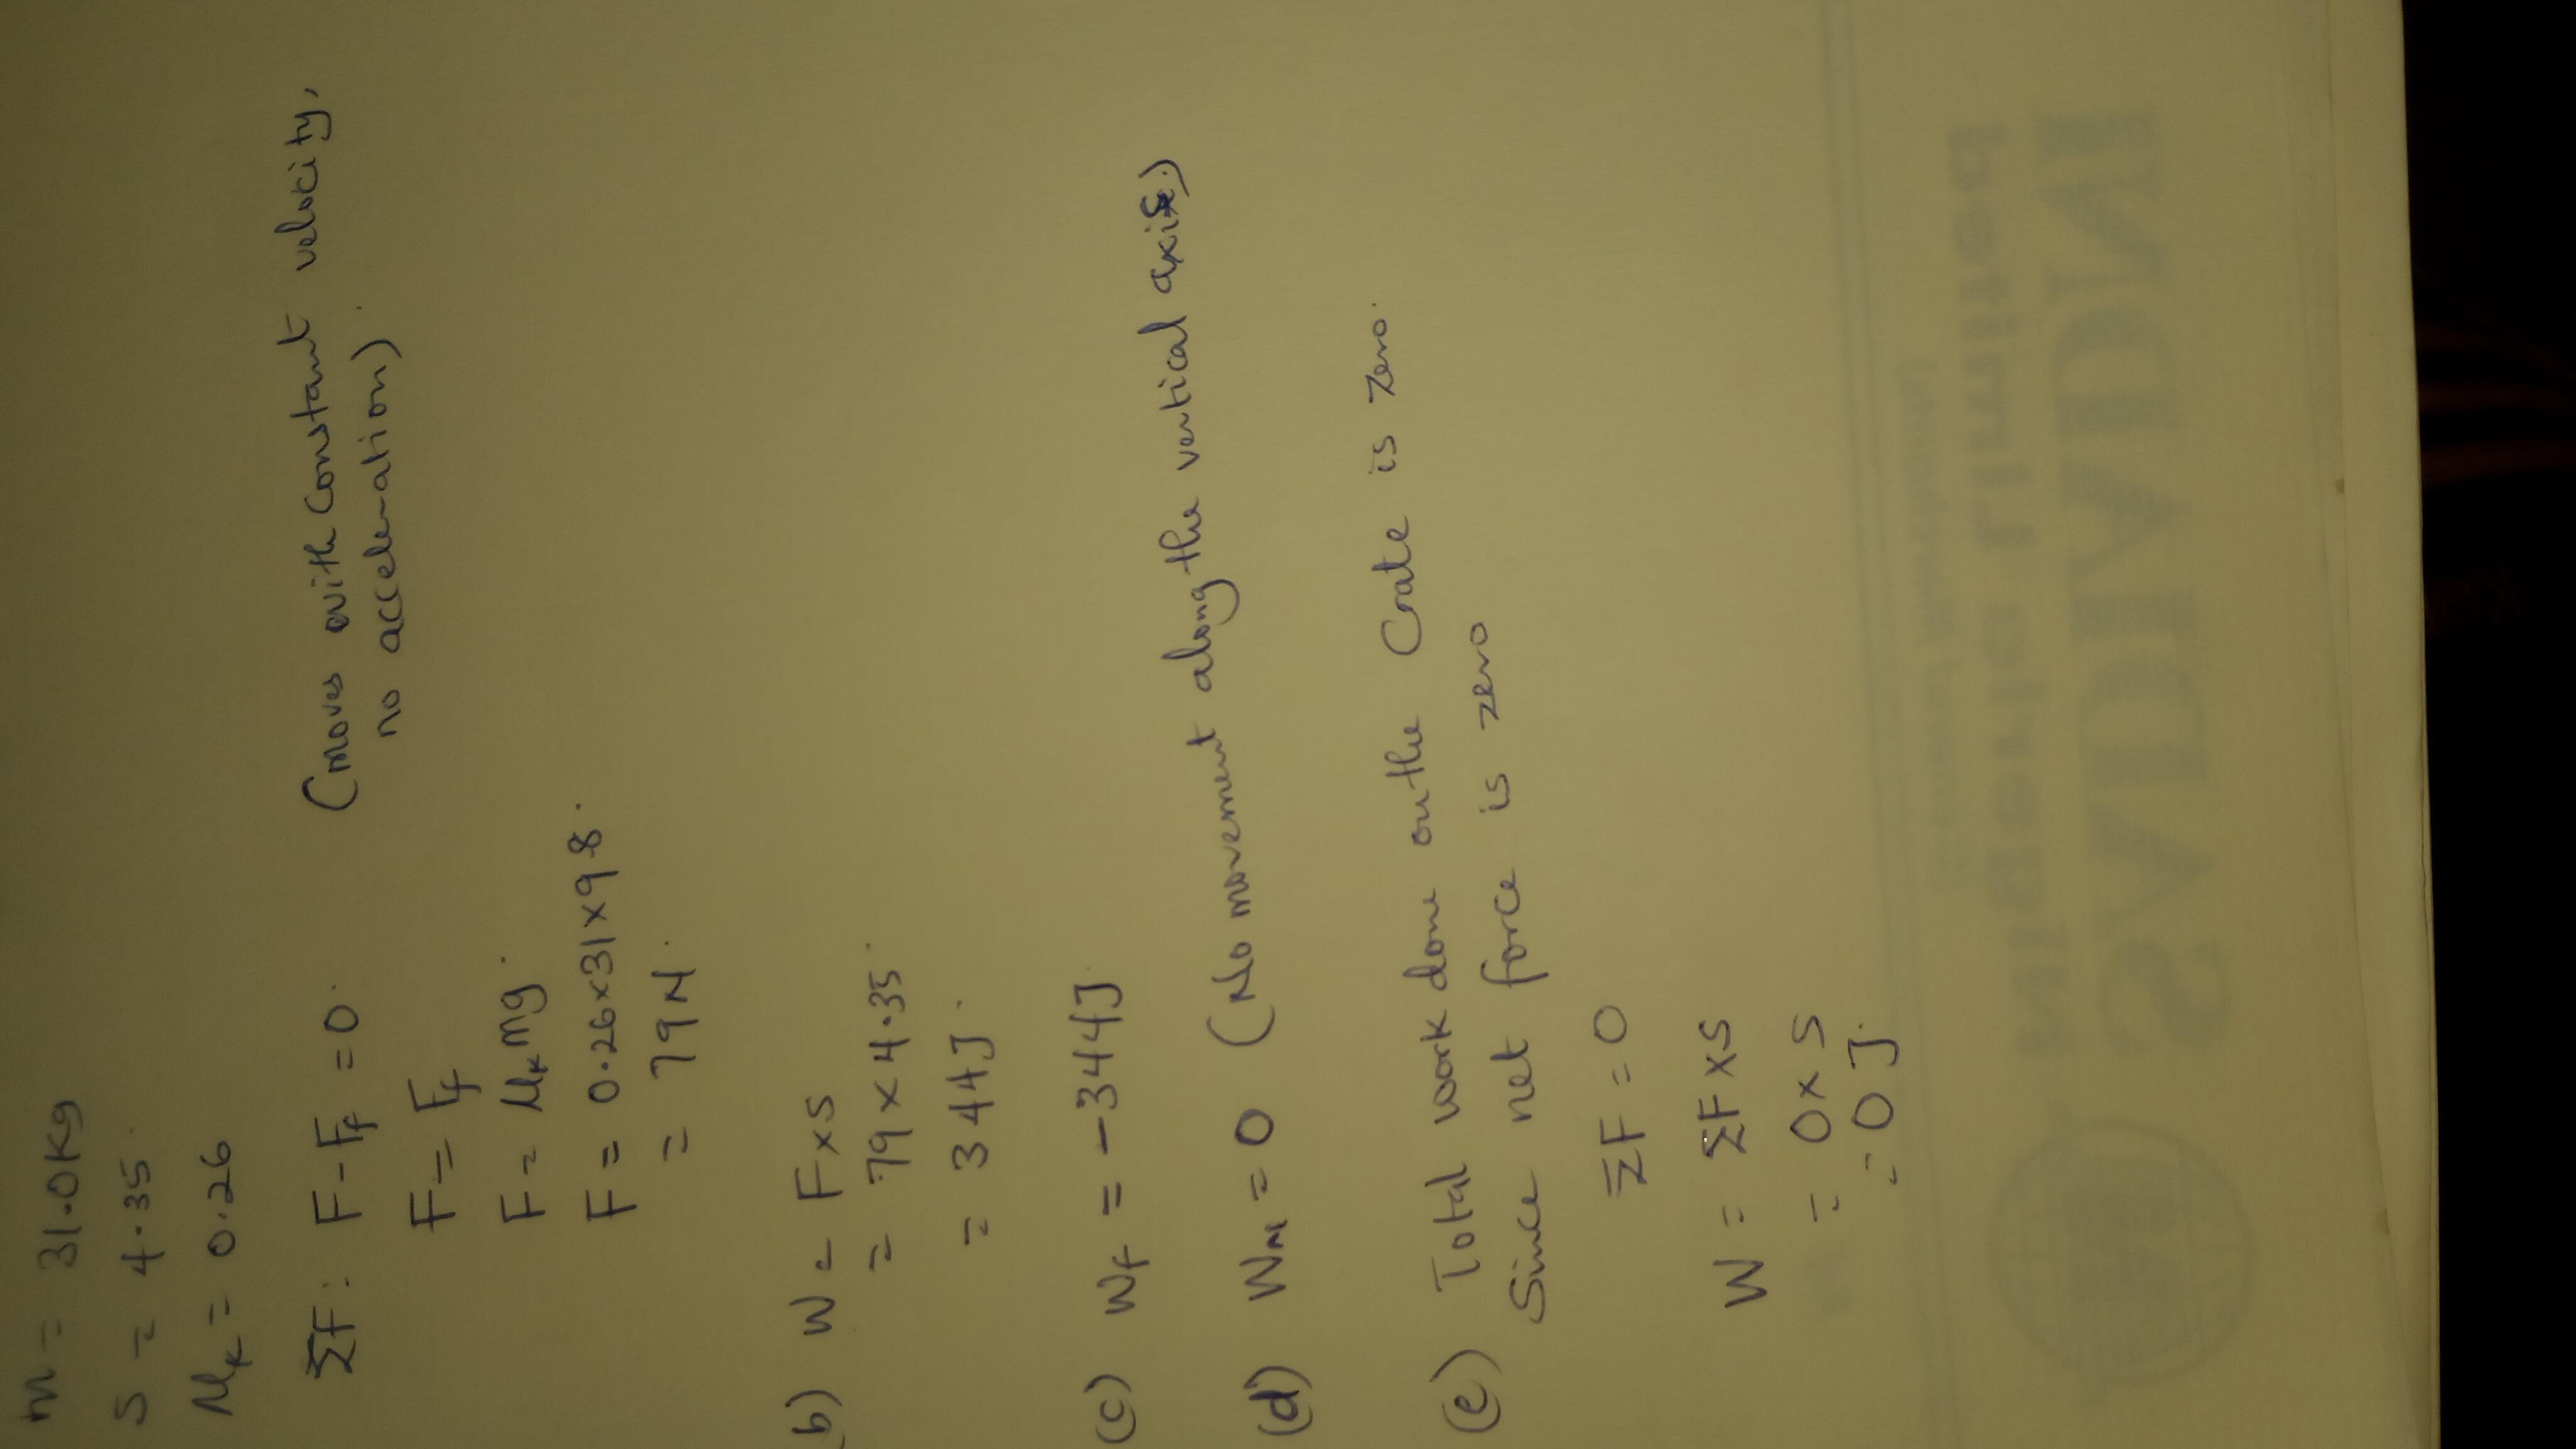 m = 31.0kg
S = 4.35
μk = 0.26
ΣF: F - Ff = 0. (moves with constant velocity,
no acceleration)
F = Ff
F = μk mg.
F = 0.26×31×9.8.
= 79N.
b) W = F×S
= 79 × 4.35
= 344J.
(c) Wf = -344J
(d) WN = 0 (No movement along the vertical axis.)
(e) Total work done on the Crate is zero.
Since net force is zero
ΣF = 0
W = ΣF×S
= 0×S
= 0J.
Nigeria Limited